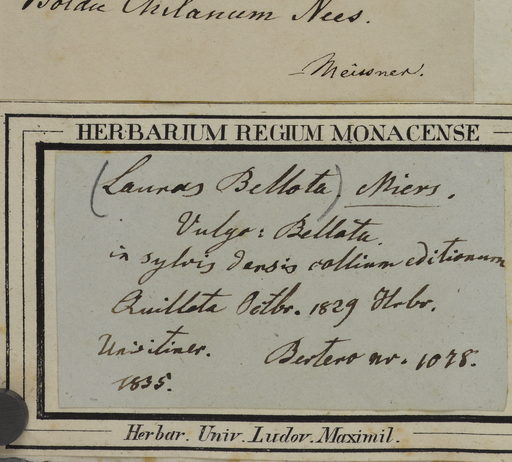 Boldu Chilanum Nees.
Meissner.
HERBARIUM REGIUM MONACENSE
(Lauras Bellota) Miers.
Vulgo: Bellata.
in sylvis densis collium editionum
Quillota Octbr. 1829 Hrbr.
Unioitiner. Bertero nr. 1078.
1835.
Herbar. Univ. Ludov. Maximil.